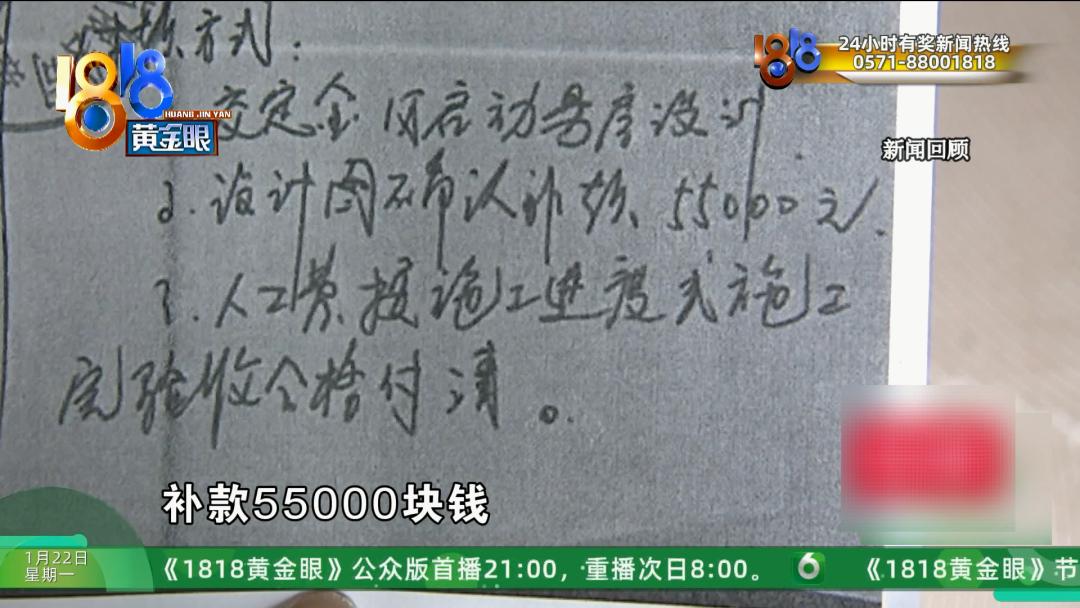 方式：
24小时有奖新闻热线
0571-88001818
1818
HUANG JIN YAN
黄金眼
1818
交定金后启动易度设计
新闻回顾
2.设计图确认补款、55000元
3.人工费按施工进度或施工
完验收合格付清。
补款55000块钱
1月22日
星期一
《1818黄金眼》公众版首播21:00，重播次日8:00。
6
《1818黄金眼》节